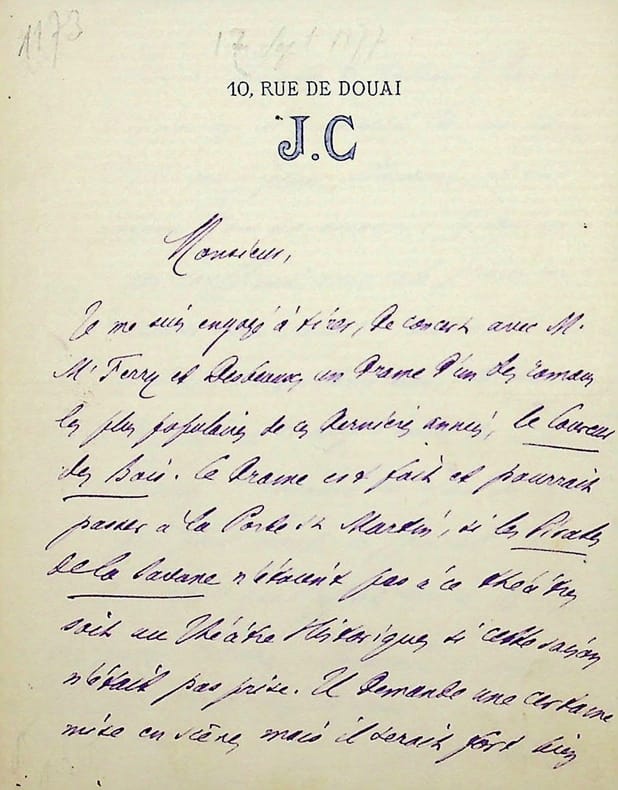 1173
17 Sept 1877
10, RUE DE DOUAI
J.C
Monsieur,
Je me suis engagé à tirer, de concert avec M.
M. Ferry et un Drame d'un des romans
les plus populaires de ces dernières années, le Coureur
des Bois. Ce Drame est fait et pourrait
passer à la Porte St Martin, si les Pirates
de la Savane n'étaient pas à ce théâtre,
soit au Théâtre Historique, si cette saison
n'était pas prise. Il Demande une certaine
mise en scène, mais il serait fort bien